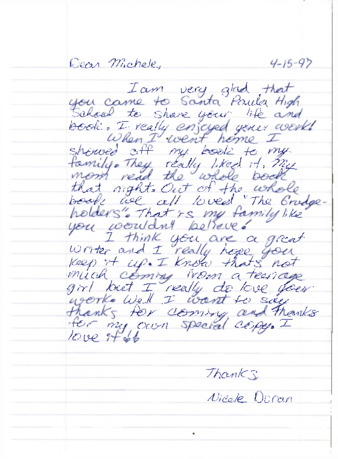 Dear Michele, 4-15-97
I am very glad that
you came to Santa Paula High
School to share your life and
book. I really enjoyed your work!
When I went home I
showed off my book to my
family. They really liked it. My
mom read the whole book
that night. Out of the whole
book we all loved "The Grudge-
holders". That is my family like
you wouldn't believe!
I think you are a great
writer and I really hope you
keep it up. I know that's not
much coming from a teenage
girl but I really do love your
work. Well I want to say
thanks for coming and thanks
for my own special copy. I
love it
Thanks,
Nicole Duran